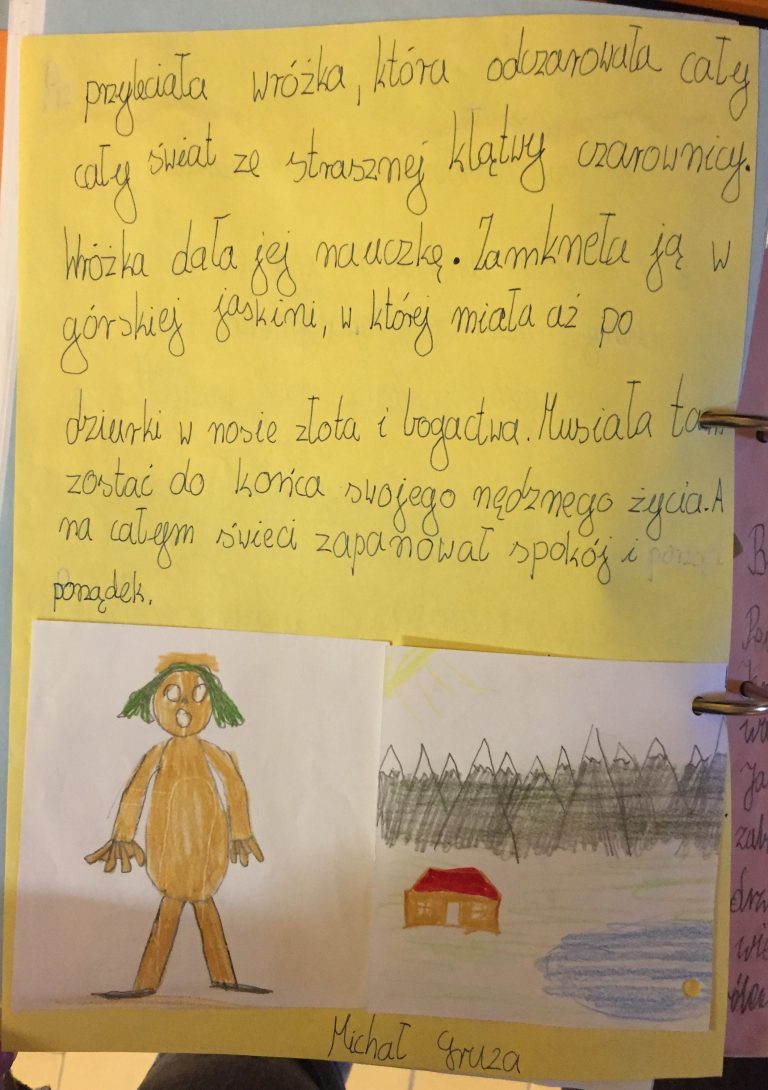 przyleciała wróżka, która odczarowała cały
cały świat ze strasznej klątwy czarownicy.
Wróżka dała jej nauczkę. Zamkneła ją w
górskiej jaskini, w której miała aż po
dziurki w nosie złota i bogactwa. Musiała
zostać do końca swojego nędznego życia. A
na całym świeci zapanował spokój i
porządek.
Michał Gruza